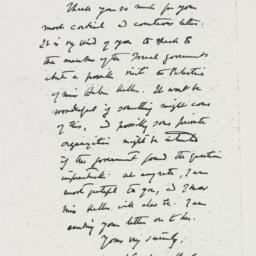 Thank you so much for your
most cordial and courteous letter.
It is very kind of you to speak to
the members of the Israel government
about a possible visit to Palestine
of Miss Helen Keller. It would be
wonderful if something might come
of this, and possibly some private
organization might be
if the government found the question
impracticable. At any rate, I am
most grateful to you, and I know
Miss Keller will also be. I am
sending your letter on to her.
Yours very sincerely,